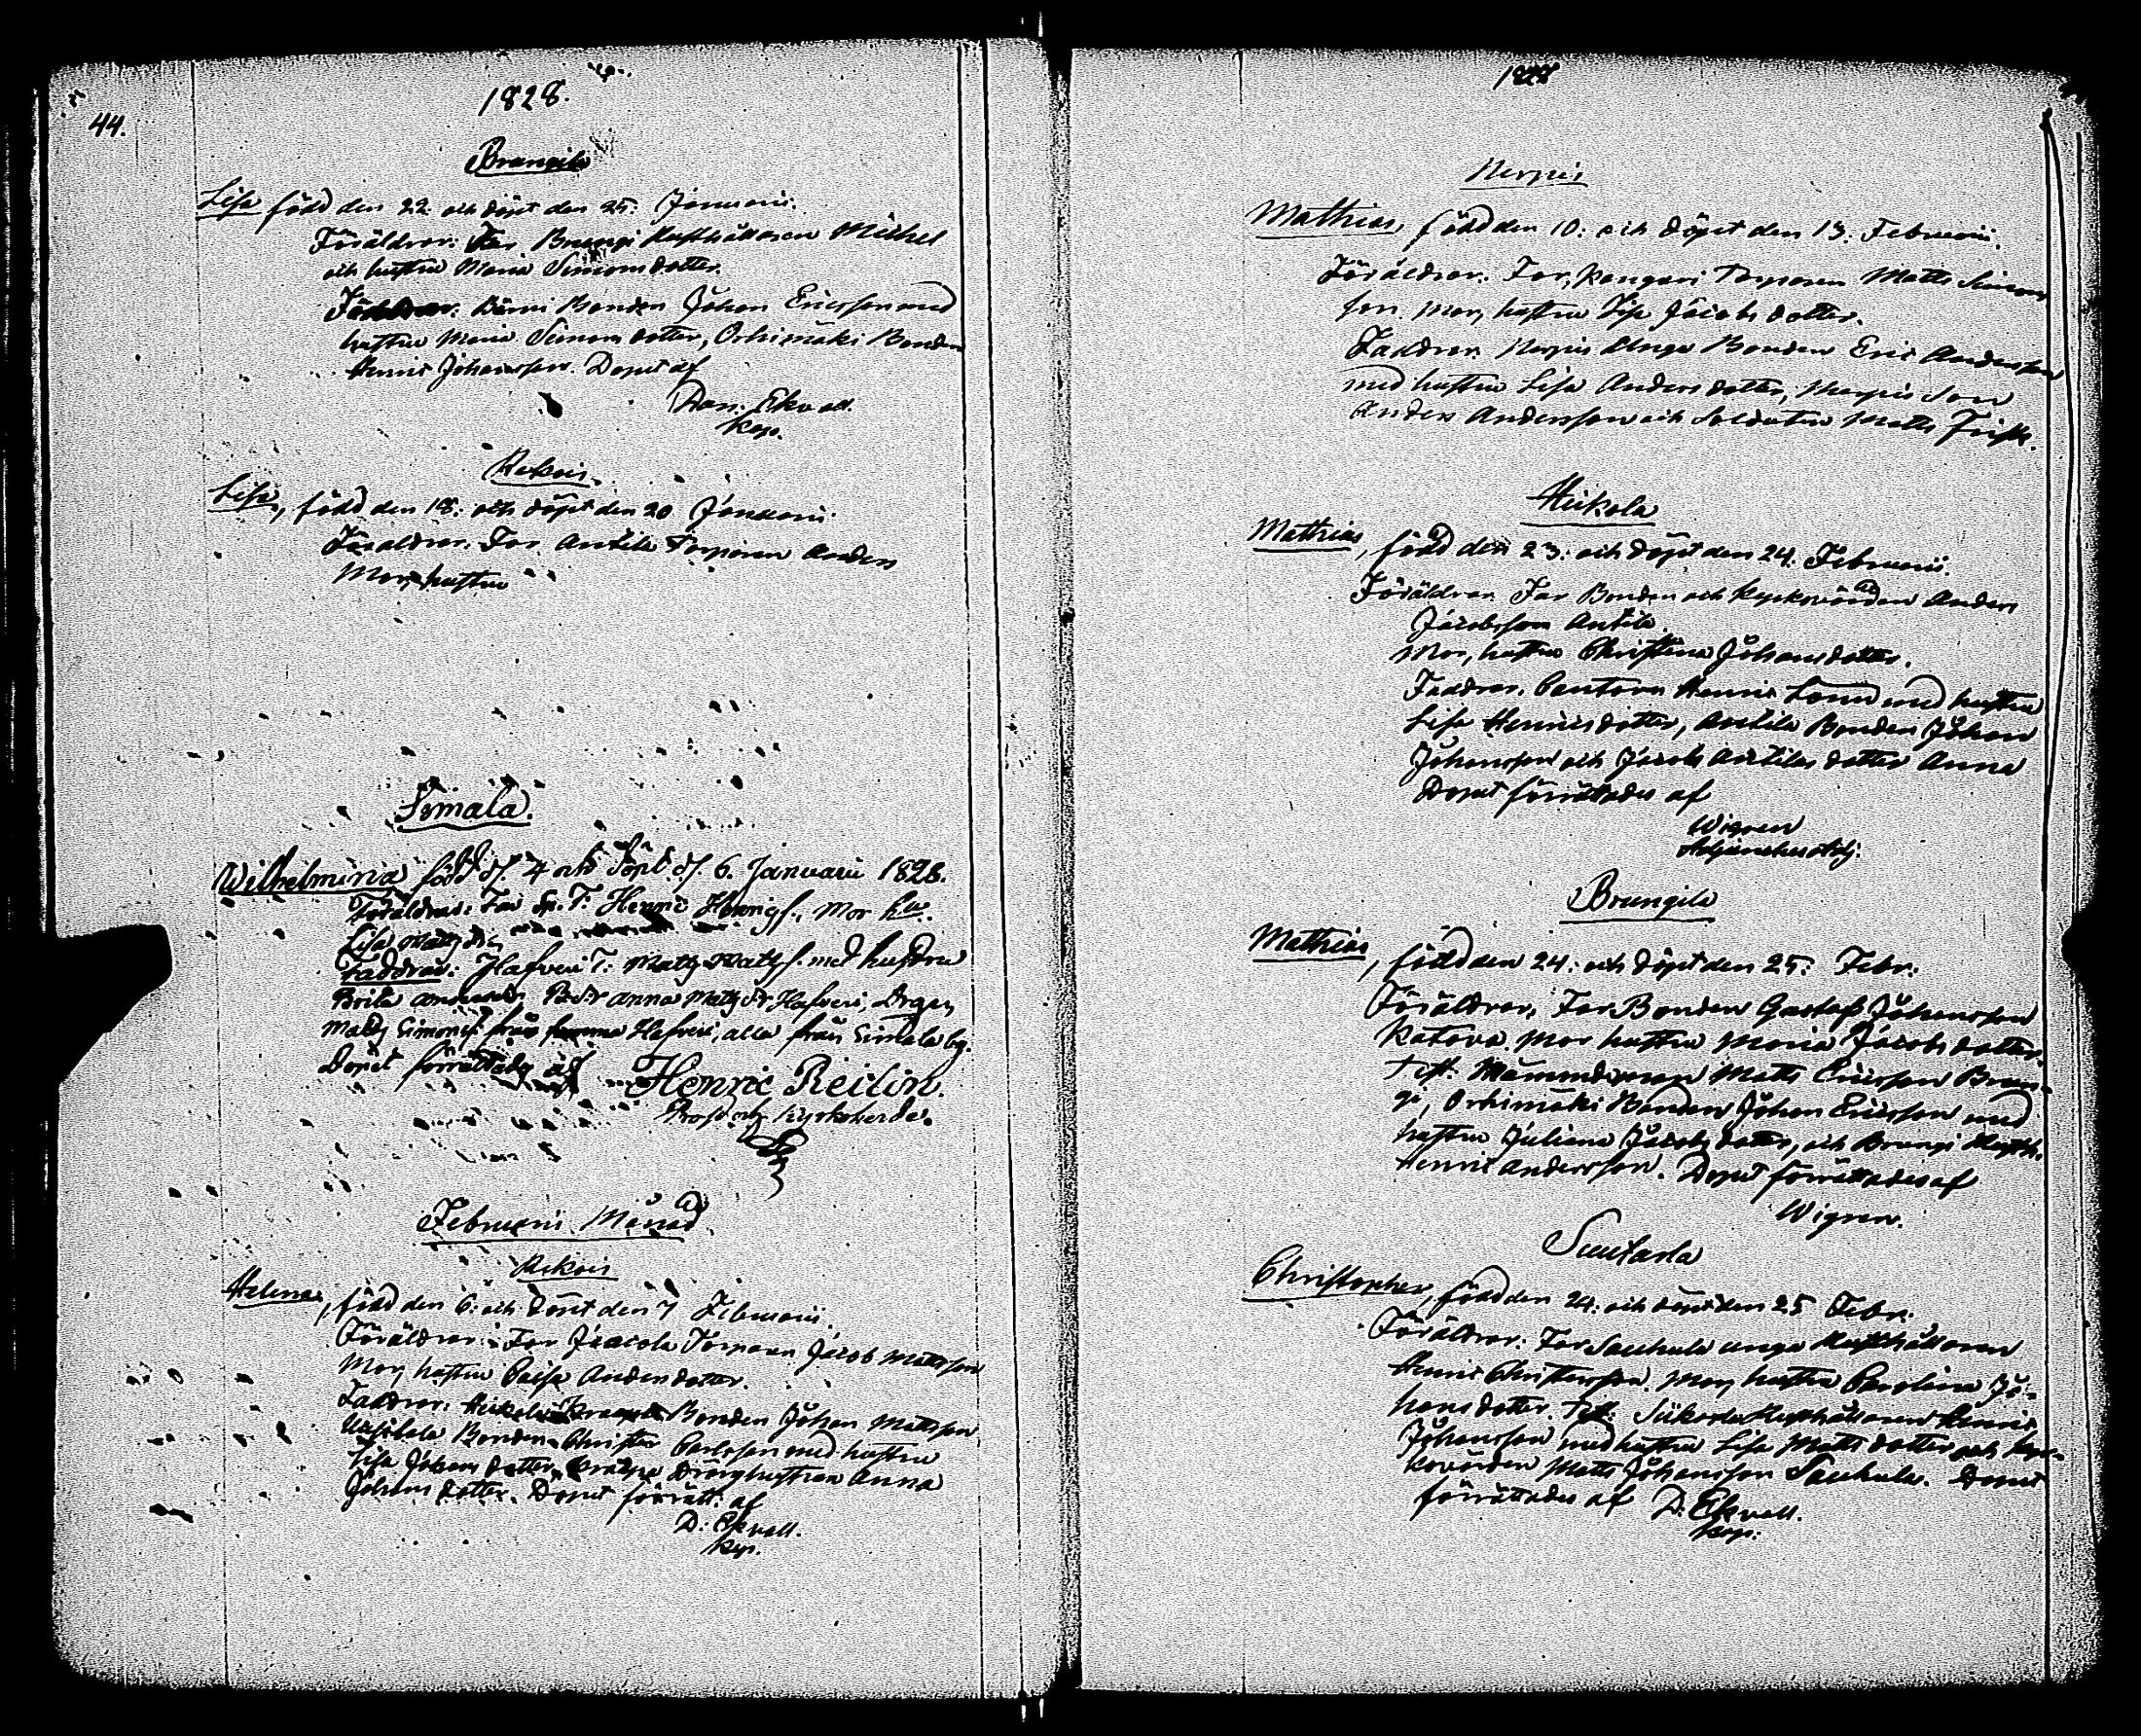 44.
1828.
Brungila
Lisa född den 22. och döpt den 25. Januarii.
Föräldrar: Far Brungi Rusthållaren Michel
och hustru Maria Simonsdotter.
Faddrar: Bonden Johan Ericsson med
hustru Maria Simonsdotter, Orhimäki Bonden
Henric Johansson. Dopet af
Dan. Ekvall.
Kap.
Rekois.
Lisa, född den 18. och döpt den 20 Januarii.
Föräldrar. Far Antila Torparen Anders
Mor, hustru
Simala.
Wilhelmina född d. 4 och döpt d. 6. Januarii 1828.
Föräldrar: Far Sn. T. Henric Henrigs., Mor h:u
Lisa Matzdr.
Faddrar: Hafveri T. Matz Matzs. med hustru
Brita Bdr Anna Matzdr Hafveri, Drgen
Matz Simonss. Hafveri, alla från Simala by.
Dopet förrättadt af Henric Reilin.
Prost och Kyrkoherde.
Februarii Månad
Rekois
Helena, född den 6. och döpt den 7 Februarii.
Föräldrar: Far Jaacola Torparen Jacob Mattsson
Mor, hustru Caisa Andersdotter.
Faddrar: Heikola Bonden Johan Mattsson
Bonden Christer Carlsson med hustru
Lisa Johansdotter, Dränghustrun Anna
Johansdotter. Dopet förrätt. af
D. Ekvall.
Kap.
1828
Nerpis
Mathias, född den 10. och döpt den 13. Februarii.
Föräldrar. Far, Kangari Torparen Matts Simons
son. Mor, hustru Lisa Jacobsdotter.
Faddrar. Nerpis Unga Bonden Eric Andersson
med hustru Lisa Andersdotter, Nerpis Son
Anders Andersson och Soldaten Matts Frisk.
Heikola
Mathias, född den 23. och döpt den 24. Februarii.
Föräldrar. Far Bonden och Kyrkovärden Anders
Jacobsson Antila
Mor, hustru Christina Johansdotter.
Faddrar. Cantorn Henric Lönn med hustru
Lisa Henricsdotter, Antila Bonden Johan
Johansson och Jacob Antilas dotter Anna
Dopet förrättades af
Wigren
Brungila
Mathias, född den 24. och döpt den 25. Febr.
Föräldrar, Far Bonden Gustaf Johansson
Katova. Mor hustru Maria Jacobsdotter.
Test: Nämndeman Matts Ericsson Brun-
gi, Orhimäki Bonden Johan Ericsson med
hustru Juliana Jacobsdotter, och Brungi Rusth.
Henric Andersson. Dopet förrättades af
Wigren.
Suutarla
Christopher, född den 24. och döpt den 25 Febr.
Föräldrar: Far Sauhula unga Rusthållaren
Henric Christersson. Mor, hustru Carolina Jo-
hansdotter. Test: Siikarla Rusthållaren Henric
Johansson med hustru Lisa Mattsdotter och Kyr-
kovärden Matts Johansson Sauhula. Dopet
förrättades af D. Ekvall.
Kap.